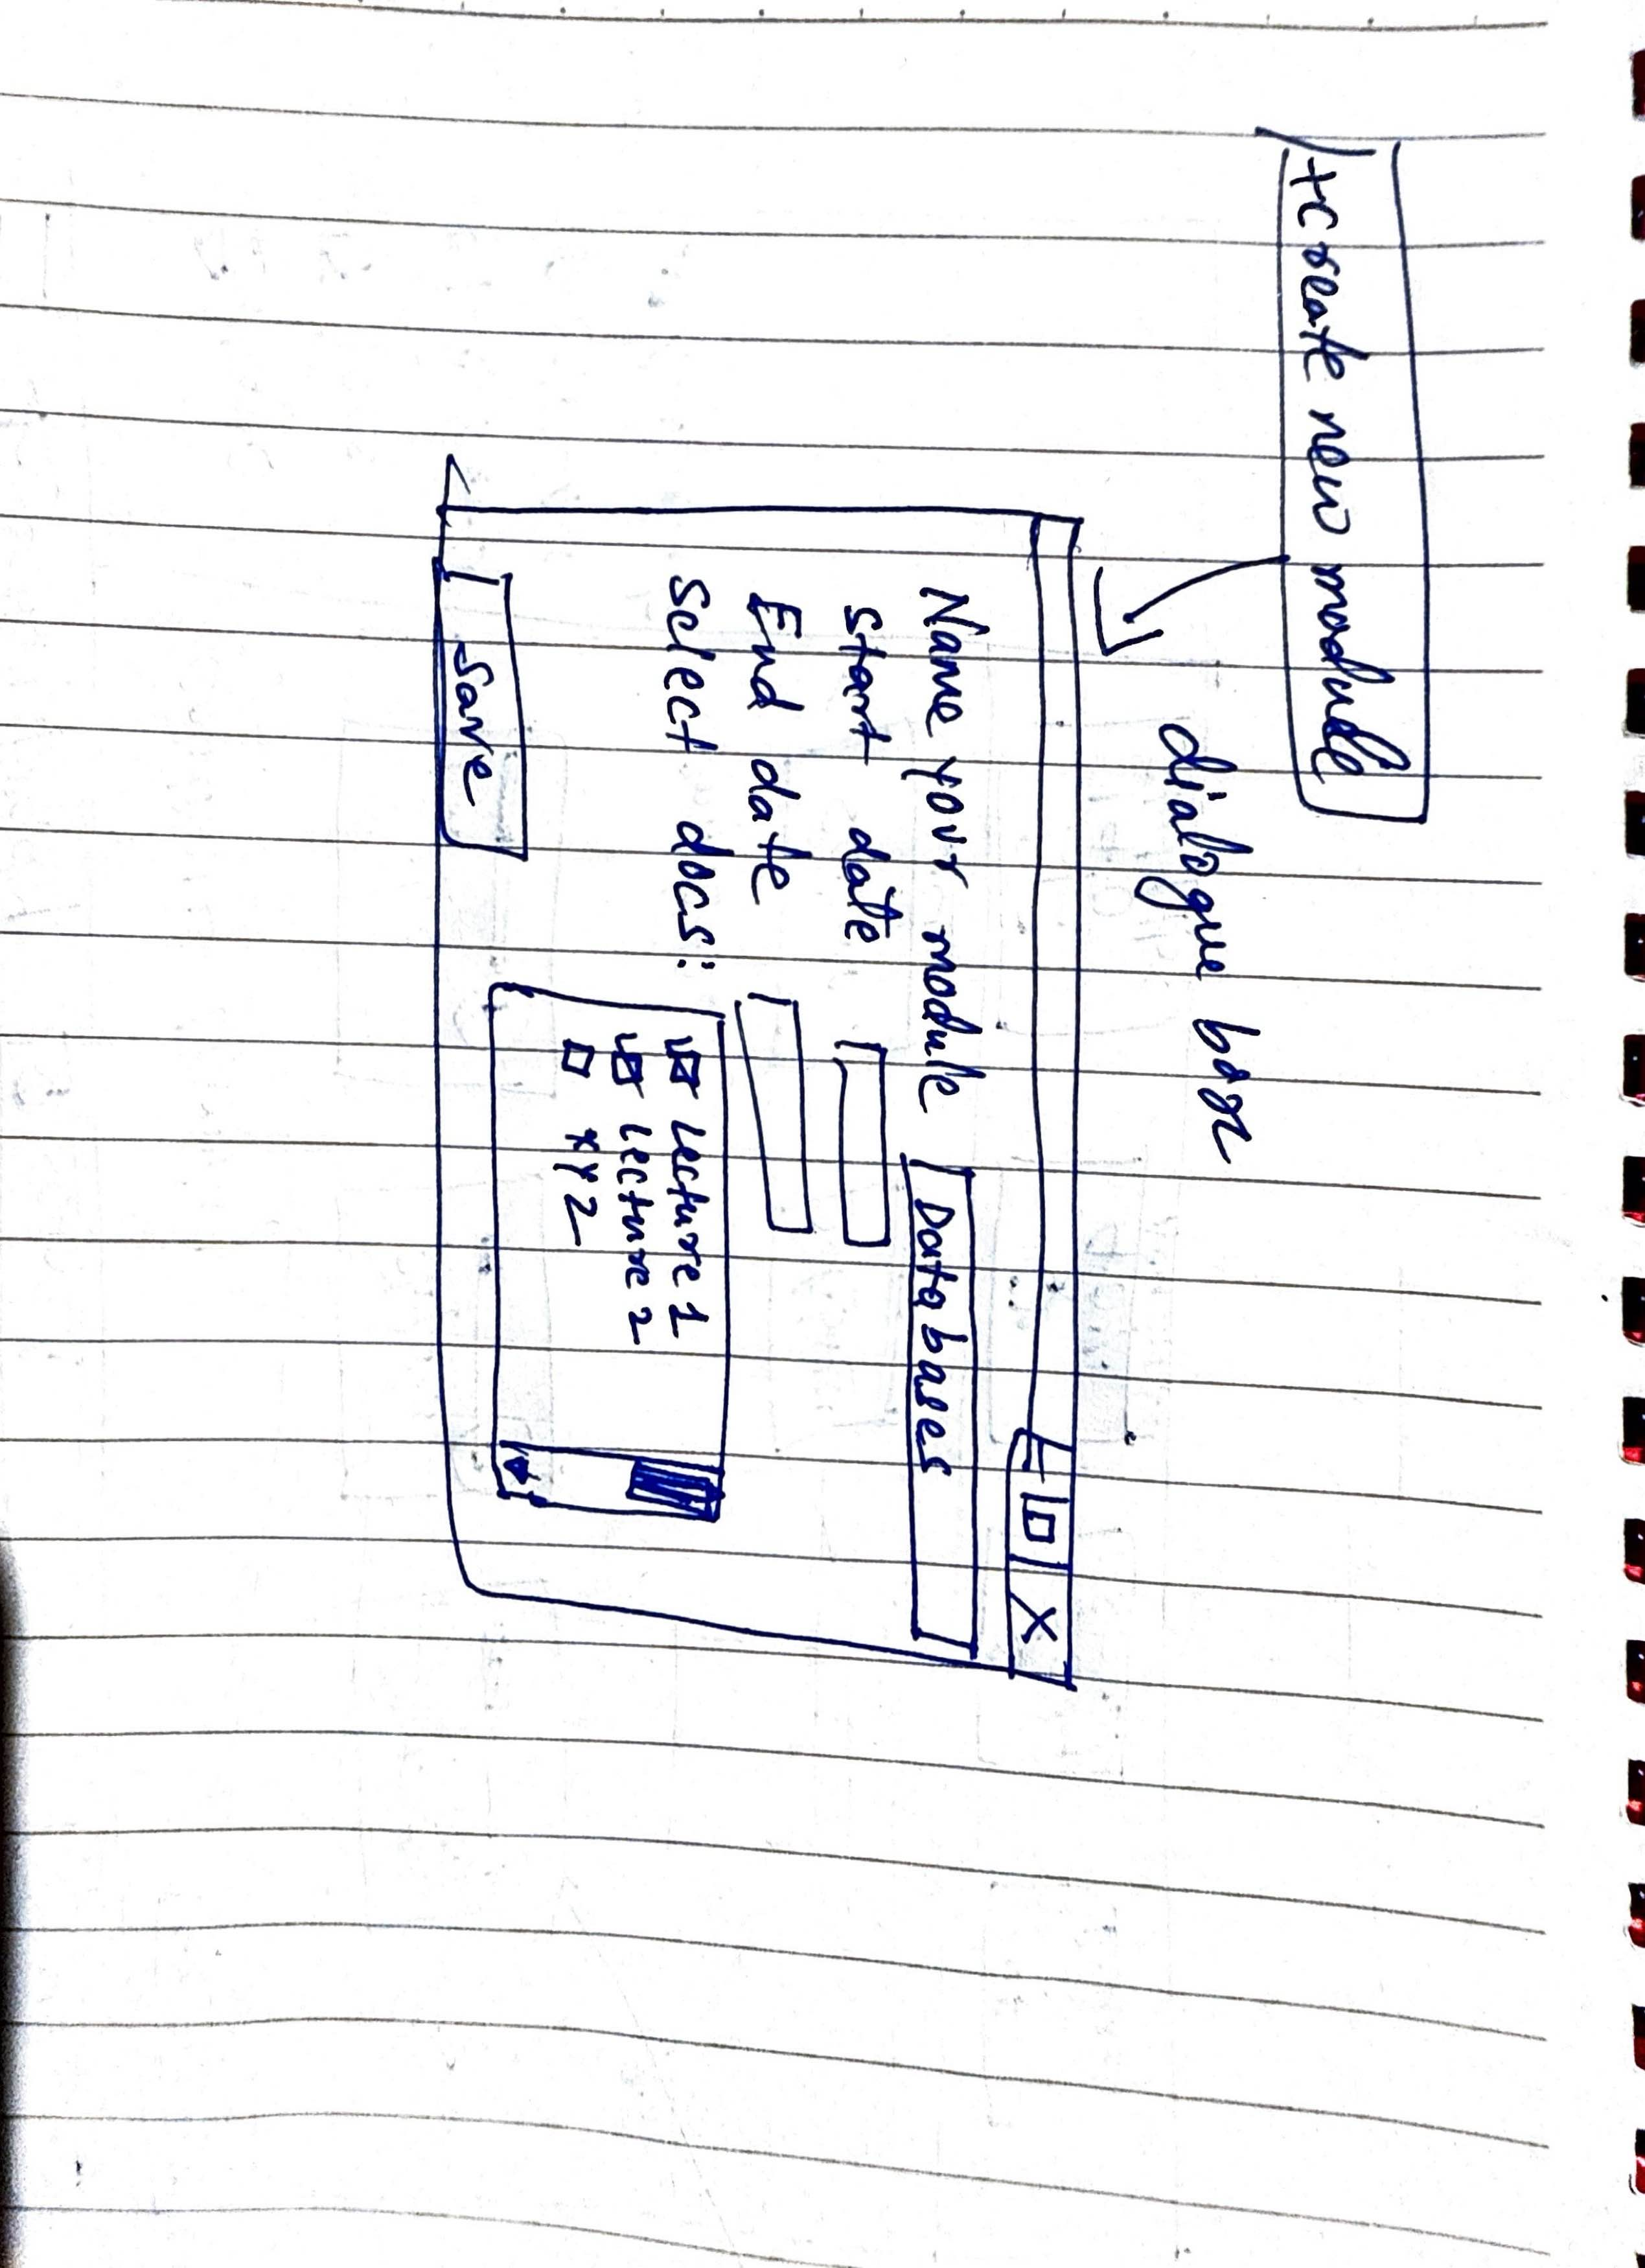 +create new module
dialogue box
- □ X
Name your module Databases
Start date
End date
Select docs:
Lecture 1
Lecture 2
XYZ
Save